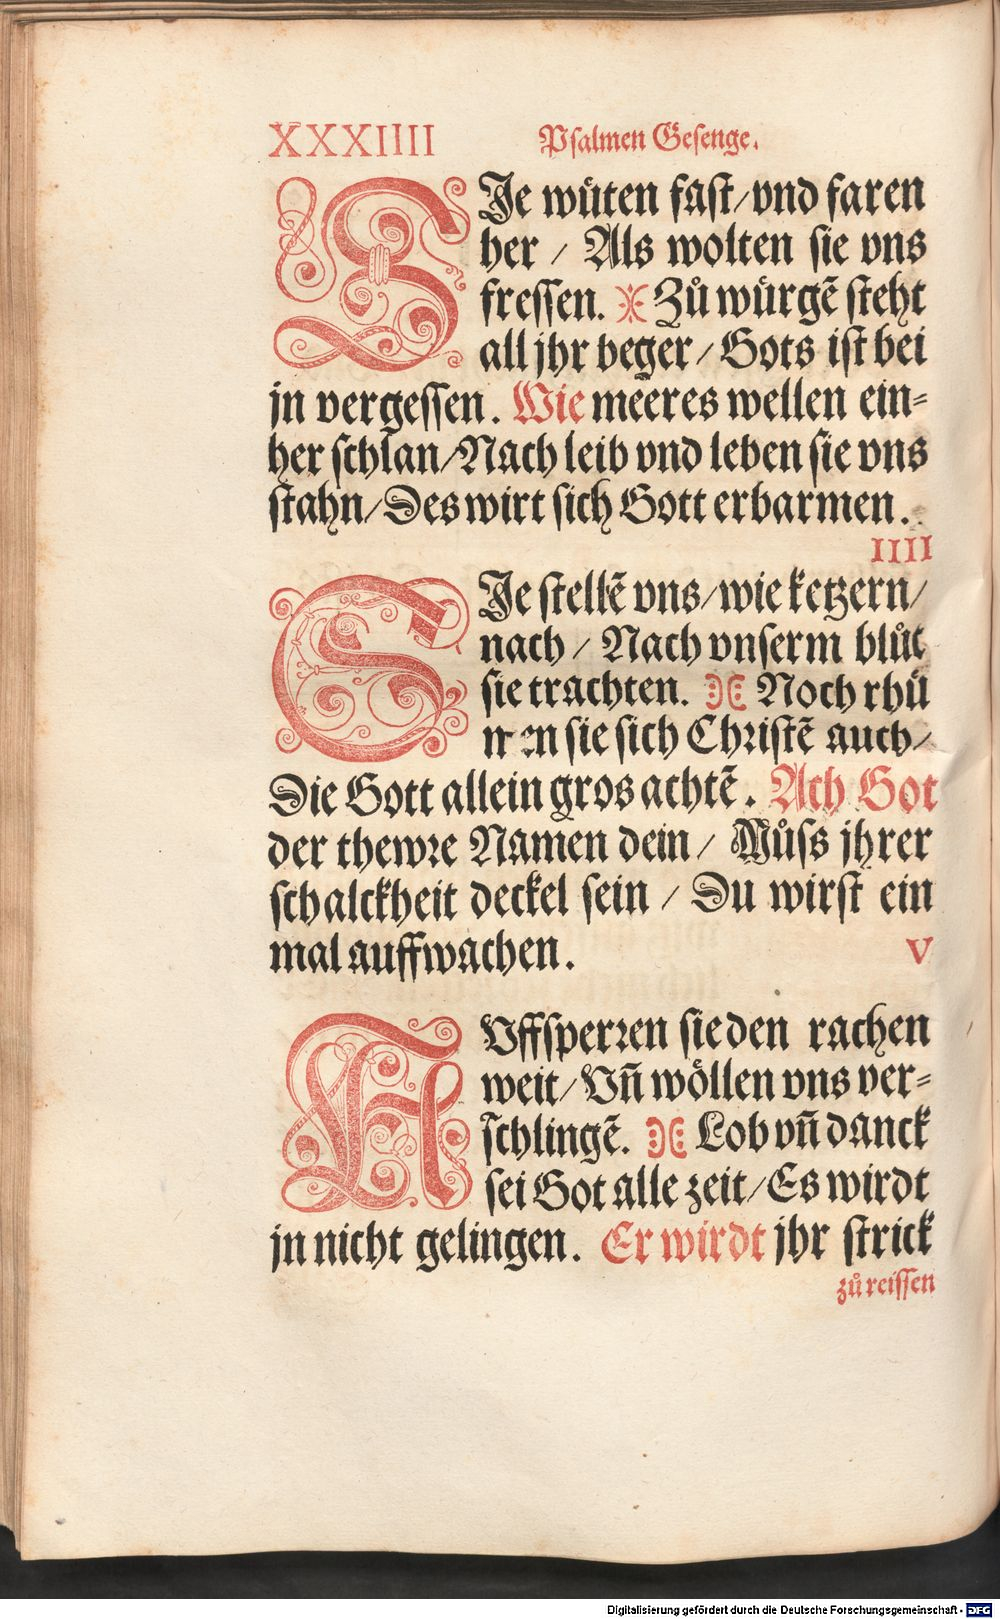 XXXIIII Psalmen Gesenge.
SIe wüten fast/vnd faren
her / Als wolten sie vns
fressen. Zů würgē steht
all jhr beger/Gots ist bei
jn vergessen. Wie meeres wellen ein=
her schlan/Nach leib vnd leben sie vns
stahn/Des wirt sich Gott erbarmen.
IIII
SIe stellē vns/wie ketzern/
nach / Nach vnserm blůt
sie trachten. Noch rhů
men sie sich Christē auch/
Die Gott allein gros achtē. Ach Got
der thewre Namen dein/ Můss jhrer
schalckheit deckel sein / Du wirst ein
mal auffwachen. V
AVffsperren sie den rachen
weit/Vñ wöllen vns ver=
schlingē. Lob vñ danck
sei Got alle zeit/Es wirdt
jn nicht gelingen. Er wirdt jhr strick
zů reissen
Digitalisierung gefördert durch die Deutsche Forschungsgemeinschaft - DFG